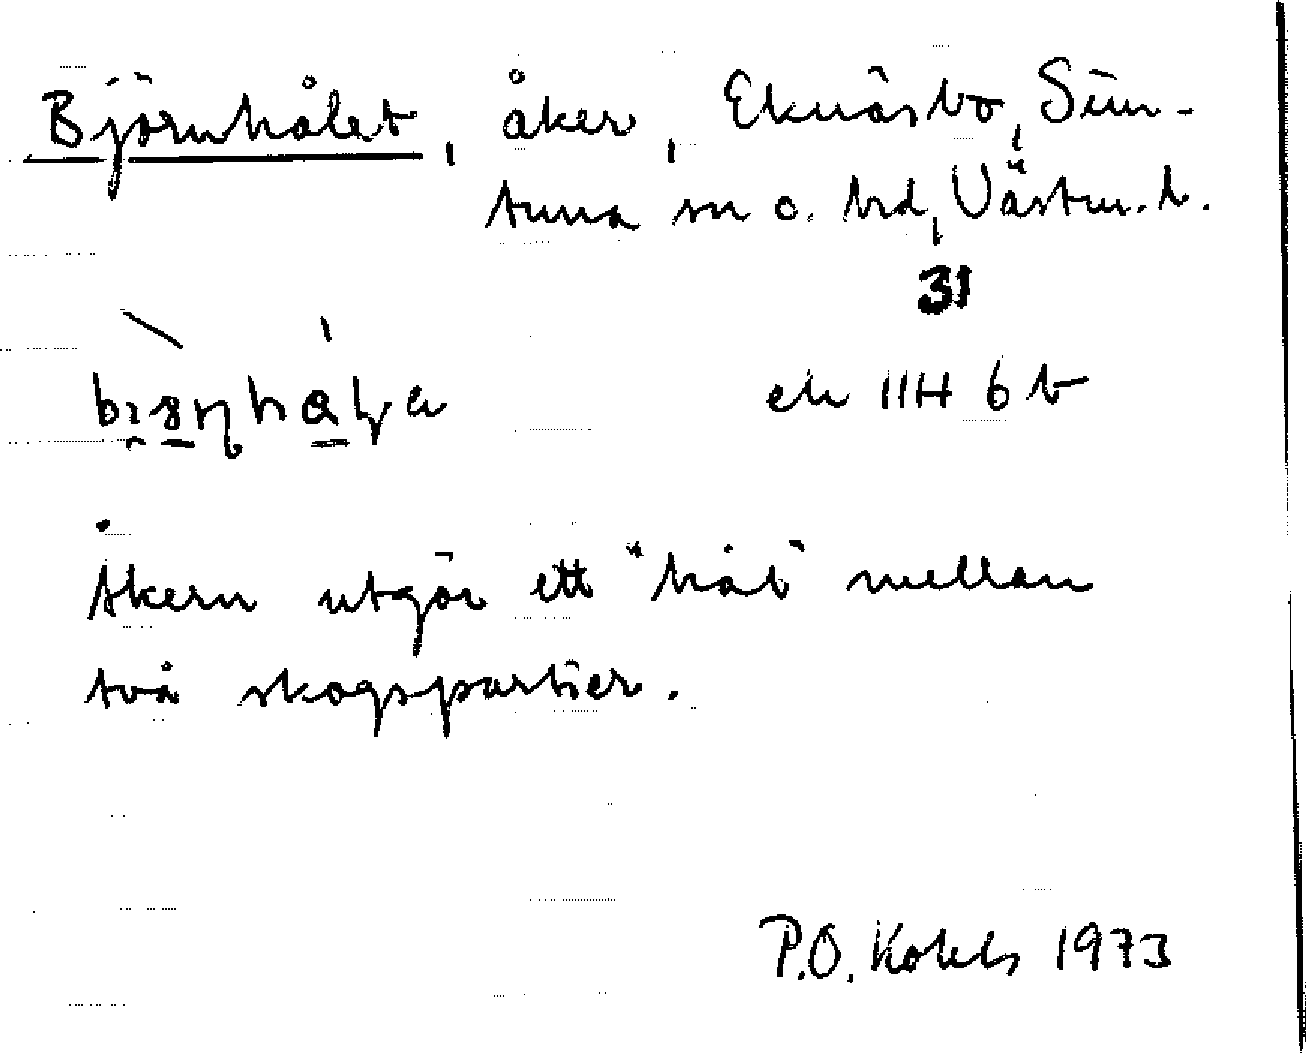 Björnhålet, åker, Eknäsbo, Sim-
tuna sn o. hd, Västm. l.
31
ek 11H 6 b
Åkern utgör ett "hål" mellan
två skogspartier.
P.O. 1973